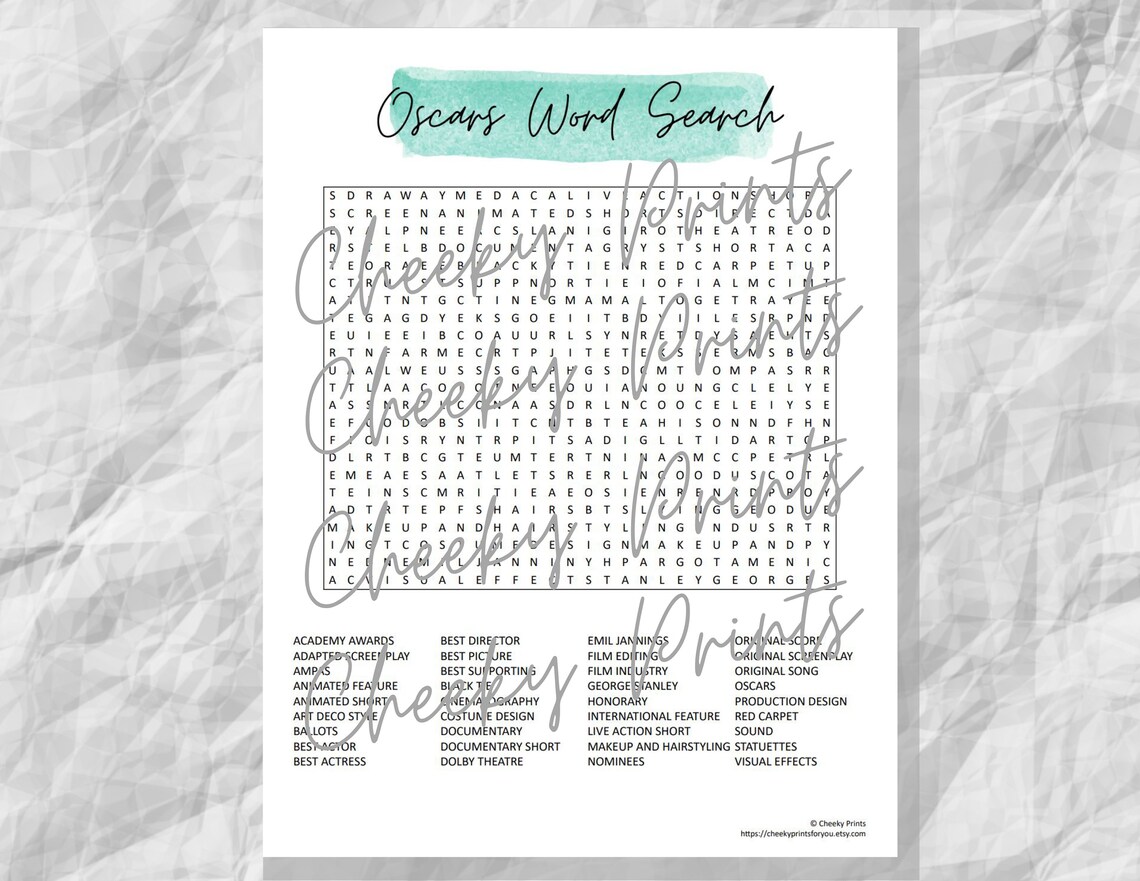 Oscars Word Search
S D R A W A Y M E D A C A L I V E A C T I O N S H O R T
S C R E E N A N I M A T E D S H O R T S D I R E C T D A
E Y A L P N E E R C S L A N I G I R O T H E A T R E O D
R S T E L B D O C U M E N T A G R Y S T S H O R T A C A
T E O R A E E B L A C K Y T I E N R E D C A R P E T U P
C T R S E S U P P N O R T I E I O F I A L M C I N T
A T T N T G C T I N E G M A M A L T O G E T R A Y E E
T E G A G D Y E K S G O E I I T B D Y I L E S R P N D
E U I E E I B C O A U U R L S Y N R E T D Y S A E U T S
R T N F A R M E C R T P J I T E T E K S S E R M S B A C
U A A L W E U S S S G A P H G S D C M T O M P A S R R
T T L A A C O C E N E E O U I A N O U N G C L E L Y E
A S S N R T L C C N A A S D R L N C O O C E L E I Y S E
E F C O D G B S I I T C N T B T E A H I S O N N D F H N
F T O I S R Y N T R P I T S A D I G L L T I D A R T C P
D L R T B C G T E U M T E R T N I N A S M C C P E T R L
E M E A E S A A T L E T S R E R L N G O O D U S C O T A
T E I N S C M R I T I E A E O S I E N R E N R D P B O Y
A D T R T E P F S H A I R S B T S L I N G G E O D U
M A K E U P A N D H A I R S T Y L I N G I N D U S R T R
I N G T C O S T U M E D E S I G N M A K E U P A N D P Y
N E E N E M I L J A N N I N Y H P A R G O T A M E N I C
A C V I S U A L E F F E C T S T A N L E Y G E O R G E S
ACADEMY AWARDS
ADAPTED SCREENPLAY
AMPAS
ANIMATED FEATURE
ANIMATED SHORT
ART DECO STYLE
BALLOTS
BEST ACTOR
BEST ACTRESS
BEST DIRECTOR
BEST PICTURE
BEST SUPPORTING
BLACK TIE
CINEMATOGRAPHY
COSTUME DESIGN
DOCUMENTARY
DOCUMENTARY SHORT
DOLBY THEATRE
EMIL JANNINGS
FILM EDITING
FILM INDUSTRY
GEORGE STANLEY
HONORARY
INTERNATIONAL FEATURE
LIVE ACTION SHORT
MAKEUP AND HAIRSTYLING
NOMINEES
ORIGINAL SCORE
ORIGINAL SCREENPLAY
ORIGINAL SONG
OSCARS
PRODUCTION DESIGN
RED CARPET
SOUND
STATUETTES
VISUAL EFFECTS
Cheeky Prints
Cheeky Prints
Cheeky Prints
Cheeky Prints
© Cheeky Prints
https://cheekyprintsforyou.etsy.com